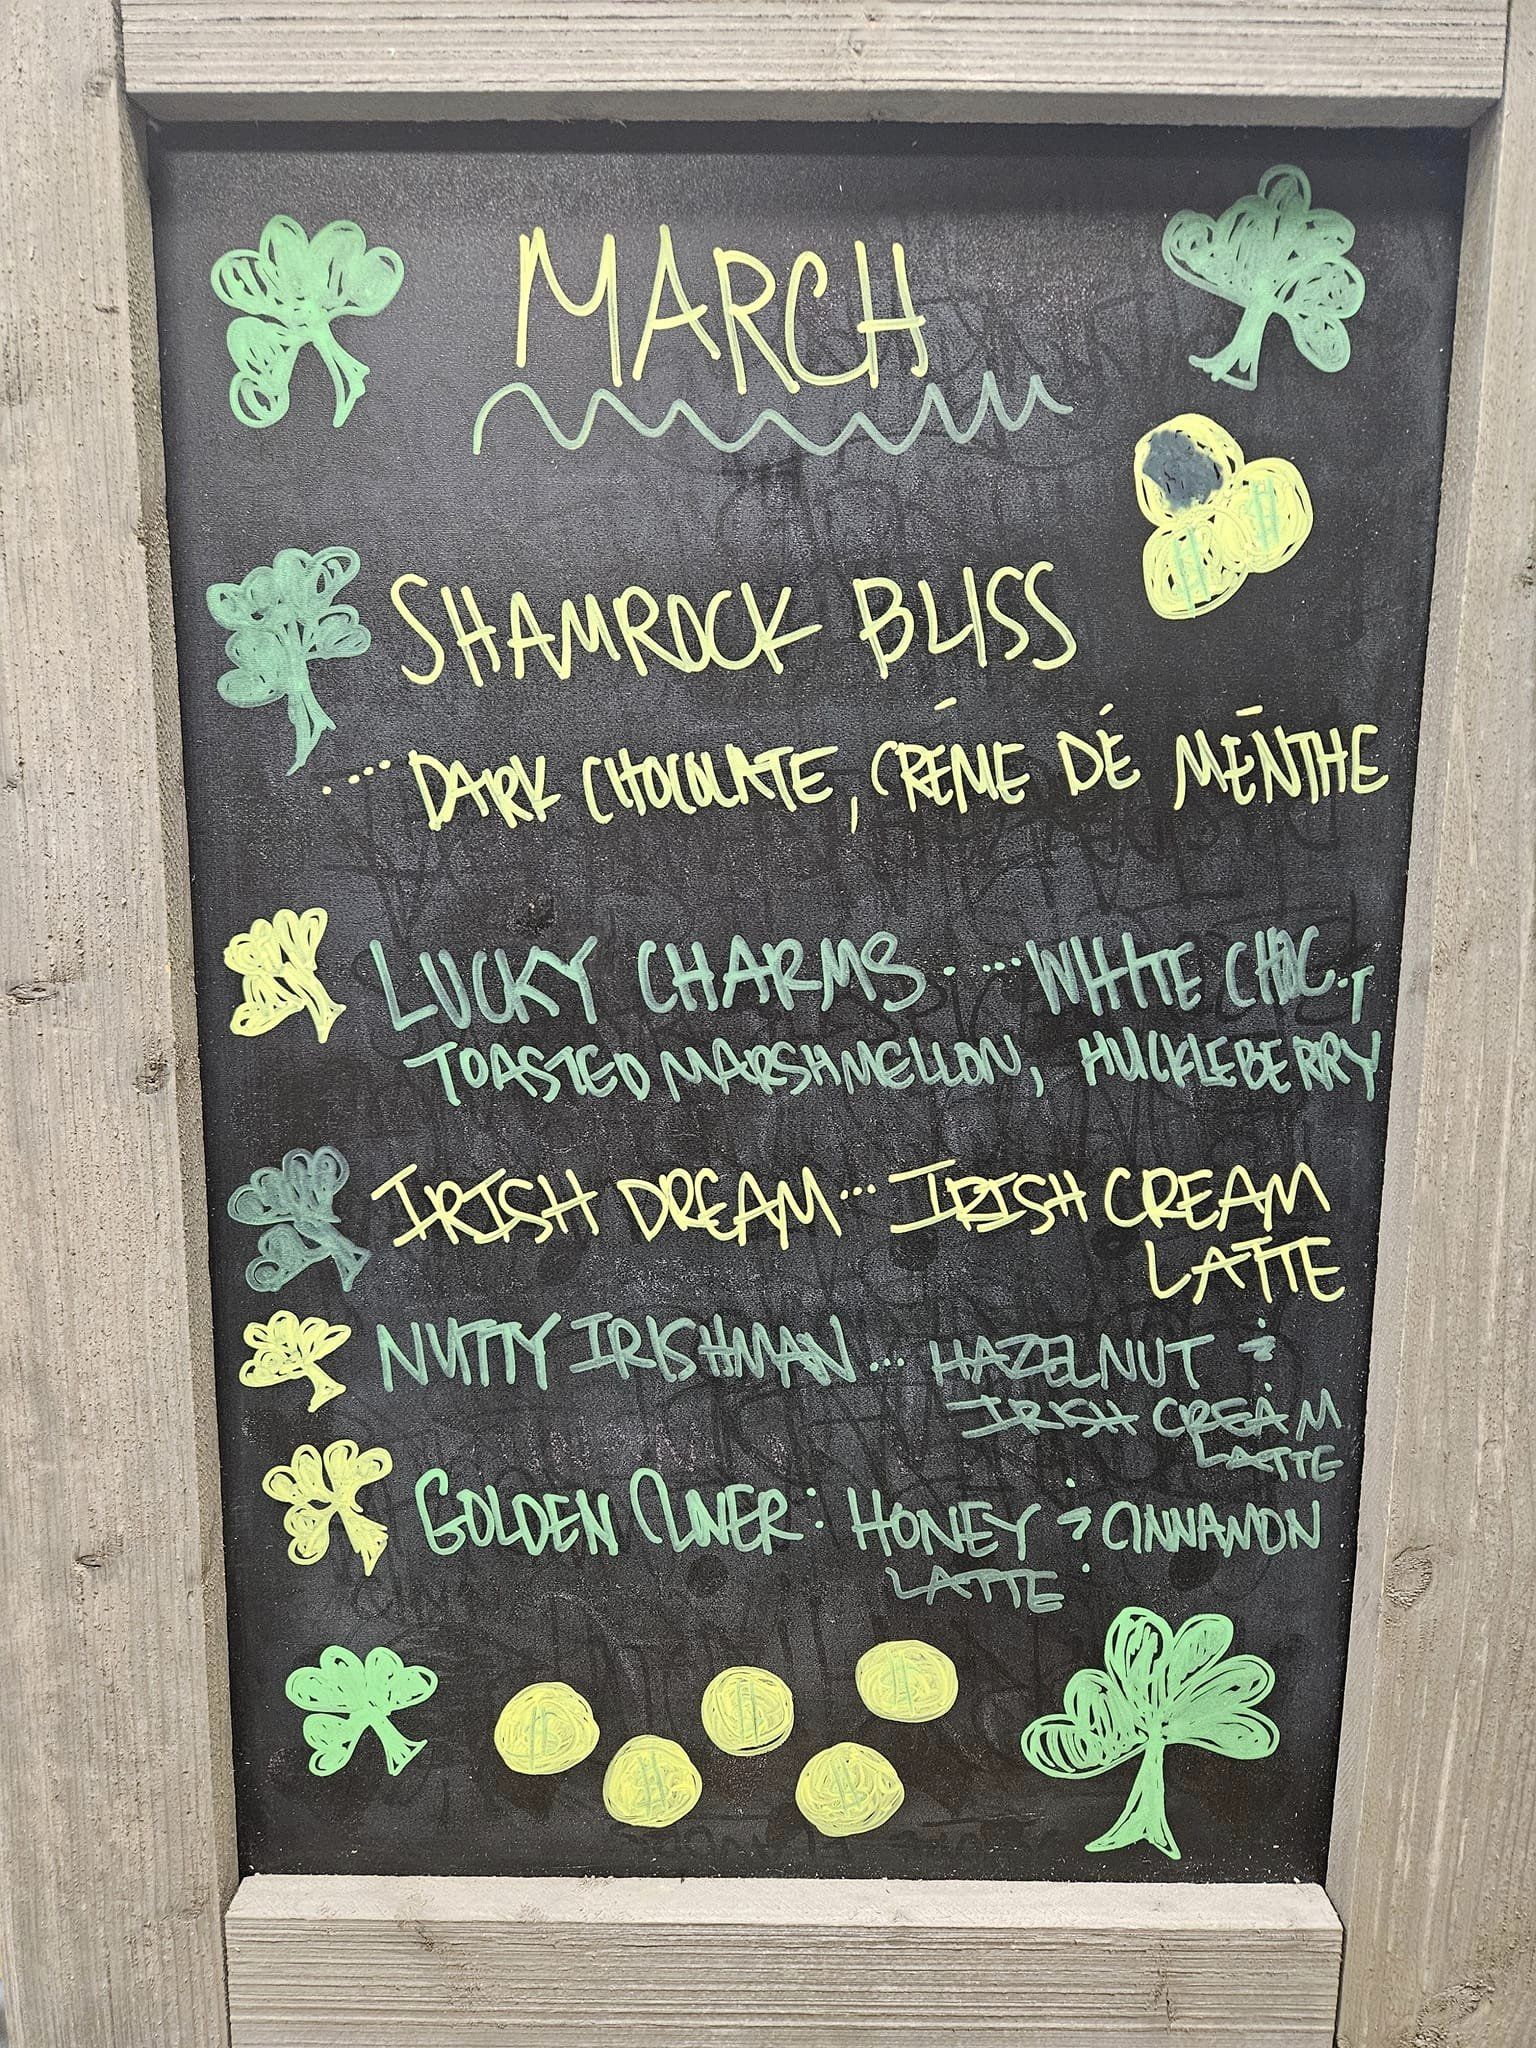 MARCH
SHAMROCK BLISS
... DARK CHOCOLATE, CRÉME DÉ MĒNTHE
LUCKY CHARMS.... WHITE CHOC. T
TOASTED MARSHMELLON, HUCKLEBERRY
IRISH DREAM... IRISH CREAM
LATTE
NUTTY IRISHMAN... HAZELNUT &
IRISH CREAM
LATTE
GOLDEN : HONEY & CINNAMON
LATTE